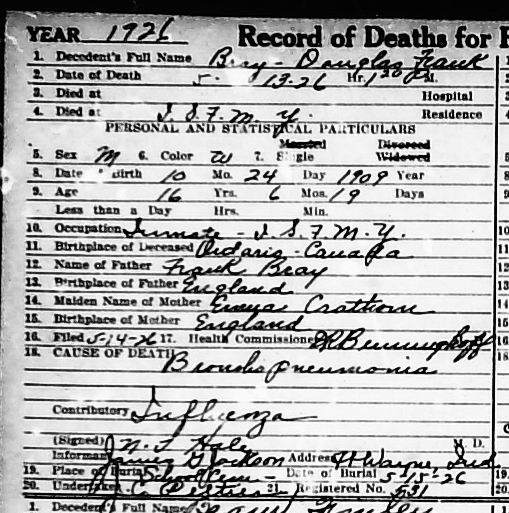 YEAR 1926 Record of Deaths for
1. Decedent's Full Name Bray - Douglas Frank
2. Date of Death 5- 13-26 Hr. 1 20 M.
3. Died at Hospital
4. Died at I. S. F. M. Y. Residence
PERSONAL AND STATISTICAL PARTICULARS
Married Divorced
5. Sex M 6. Color W 7. Single Widowed
8. Date Birth 10 Mo. 24 Day 1909 Year
9. Age 16 Yrs. 6 Mos. 19 Days
Less than a Day Hrs. Min.
10. Occupation Inmate - I. S. F. M. Y.
11. Birthplace of Deceased Ontario - Canada
12. Name of Father Frank Bray
13. Birthplace of Father England
14. Maiden Name of Mother Emma
15. Birthplace of Mother England
16. Filed 5-14-26 17. Health Commissioner
18. CAUSE OF DEATH
Broncho pneumonia
Contributory Influenza
(Signed) M. D.
Informant James Jackson Address Ft Wayne, Ind.
19. Place of Burial School Cem - Date of Burial 5-15-26
20. Undertaker J. C. Peltier 21. Registered No. 531
1. Decedent's Full Name